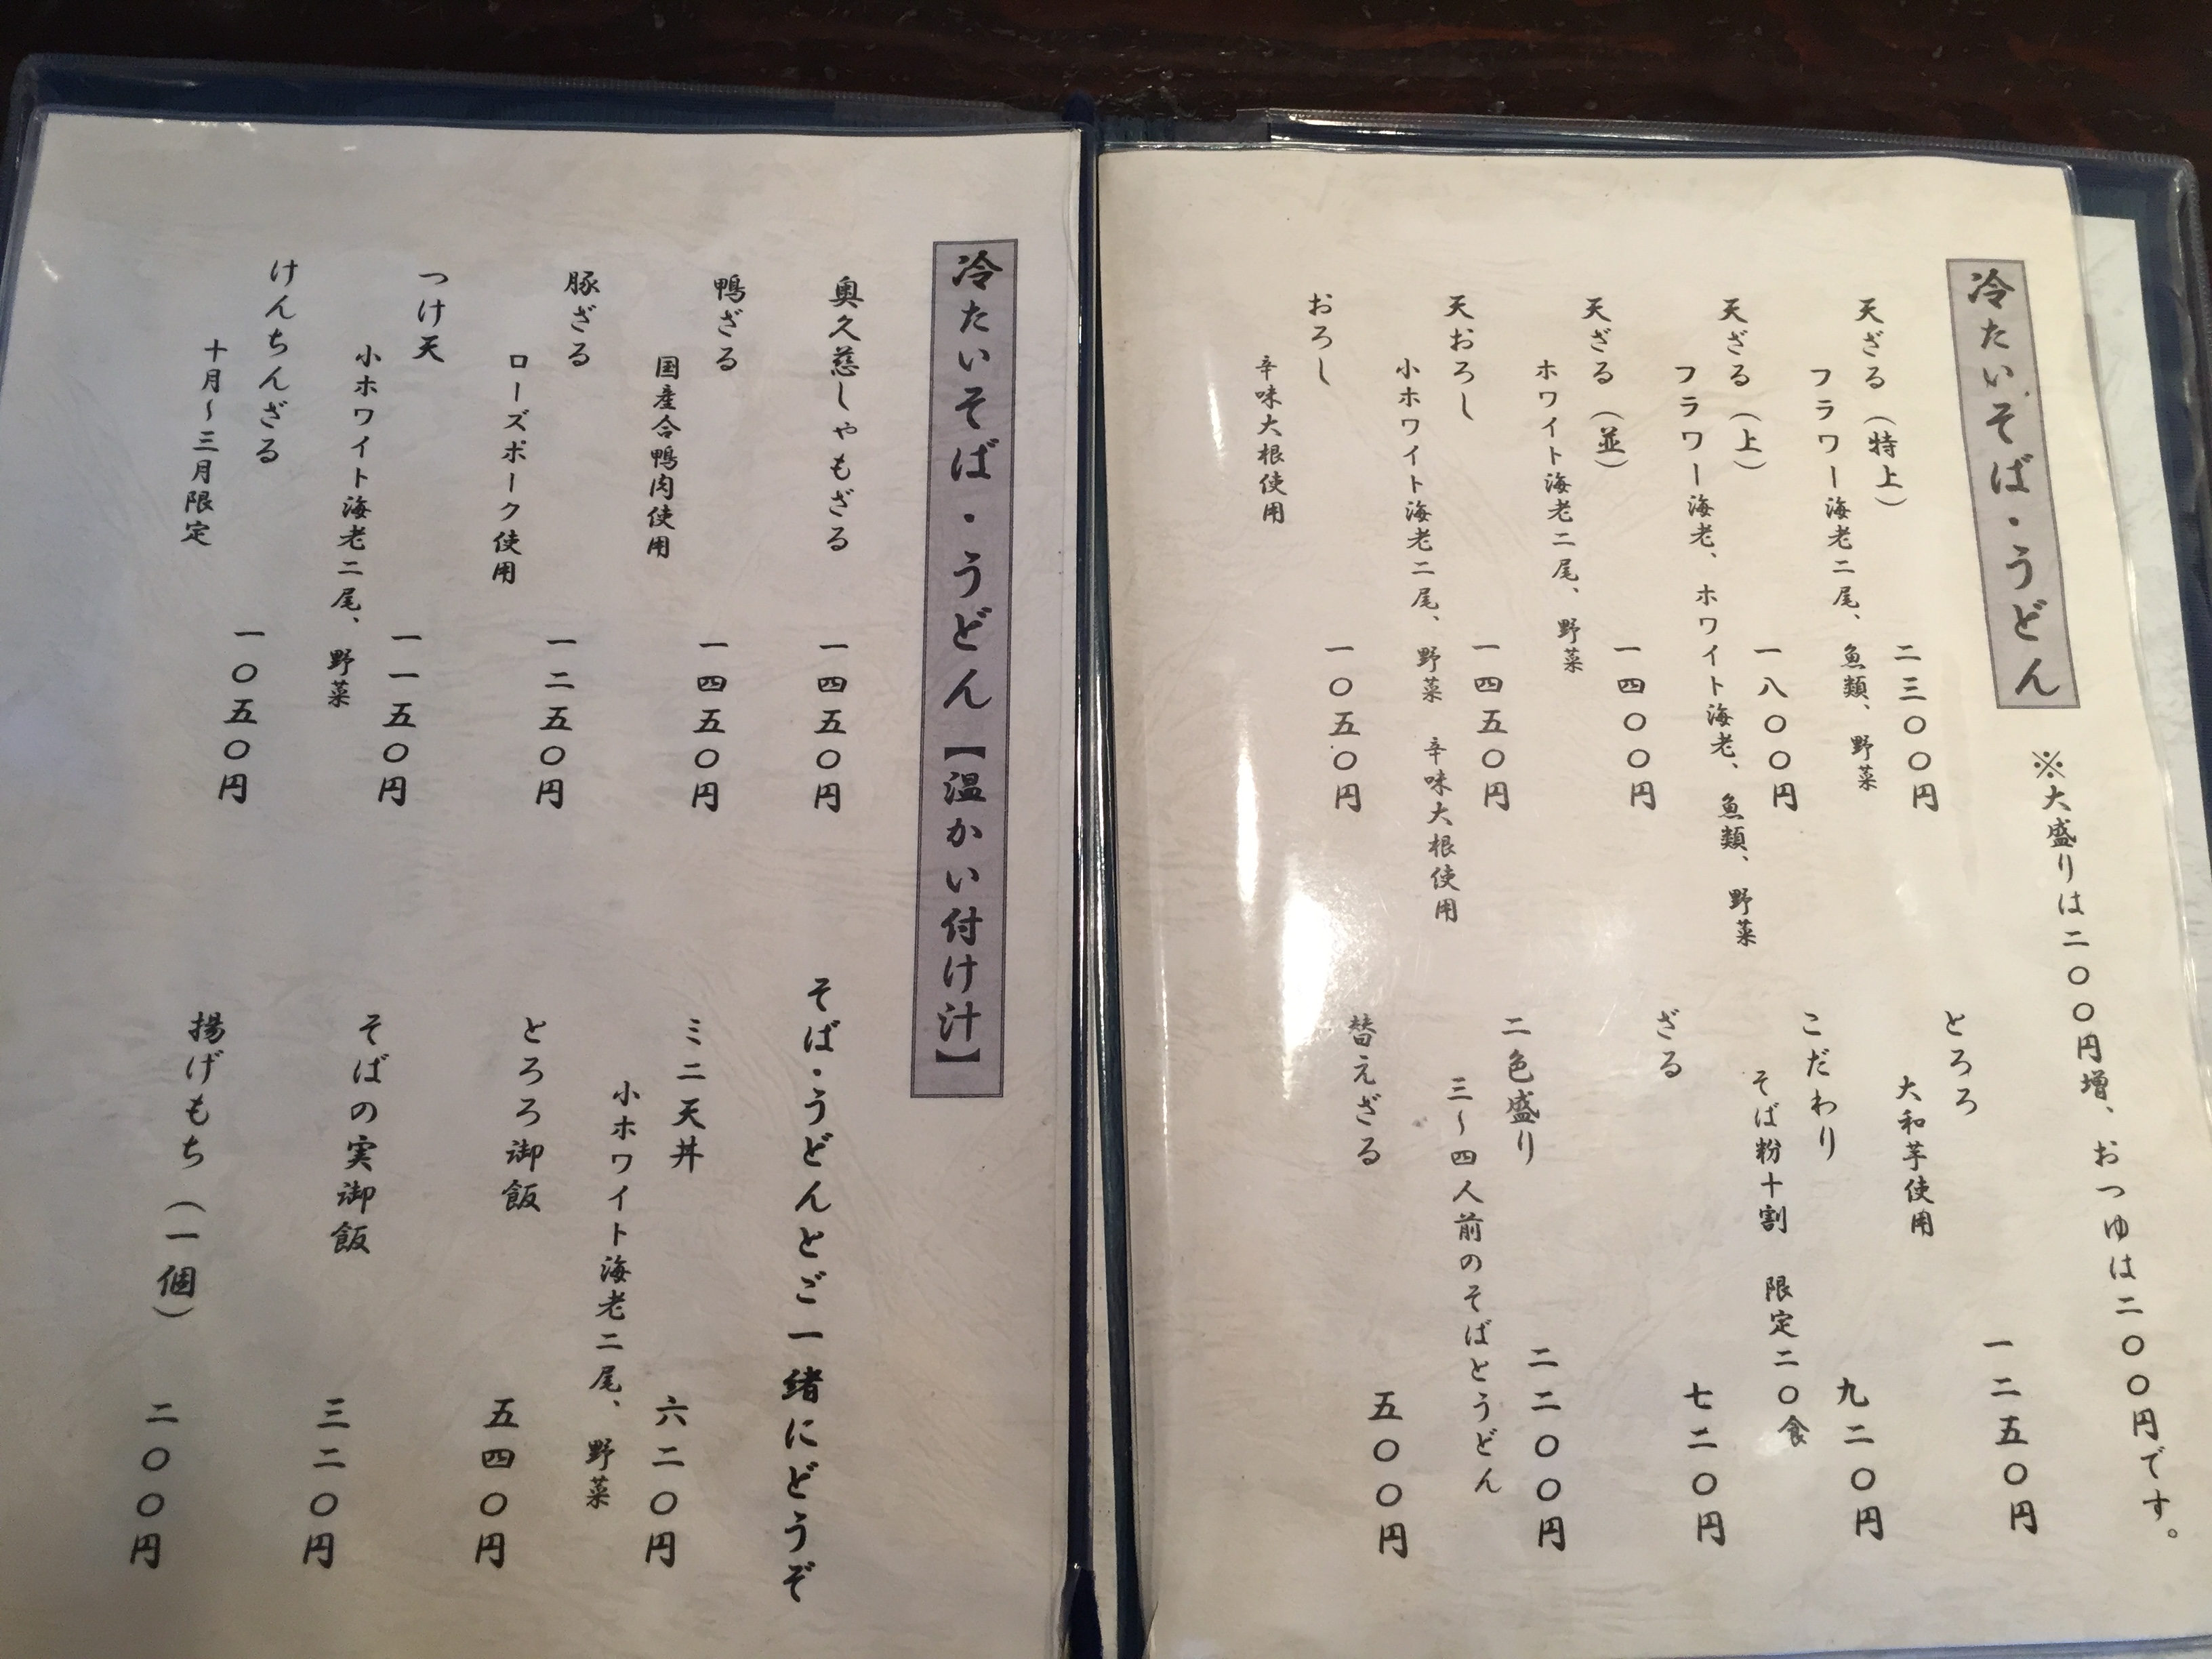 冷たいそば・うどん
※大盛りは二〇〇円増、おつゆは二〇〇円です。
天ざる（特上） 二三〇〇円
フラワー海老二尾、魚類、野菜
天ざる（上） 一八〇〇円
フラワー海老、ホワイト海老、魚類、野菜
天ざる（並） 一四〇〇円
ホワイト海老二尾、野菜
天おろし 一四五〇円
小ホワイト海老二尾、野菜 辛味大根使用
おろし 一〇五〇円
辛味大根使用
とろろ 一二五〇円
大和芋使用
こだわり 九二〇円
そば粉十割 限定二〇食
ざる 七二〇円
二色盛り 二二〇〇円
三～四人前のそばとうどん
替えざる 五〇〇円
冷たいそば・うどん【温かい付け汁】
奥久慈しゃもざる 一四五〇円
鴨ざる 一四五〇円
国産合鴨肉使用
豚ざる 一二五〇円
ローズポーク使用
つけ天 一一五〇円
小ホワイト海老二尾、野菜
けんちんざる 一〇五〇円
十月～三月限定
そば・うどんとご一緒にどうぞ
ミニ天丼 六二〇円
小ホワイト海老二尾、野菜
とろろ御飯 五四〇円
そばの実御飯 三二〇円
揚げもち（一個） 二〇〇円